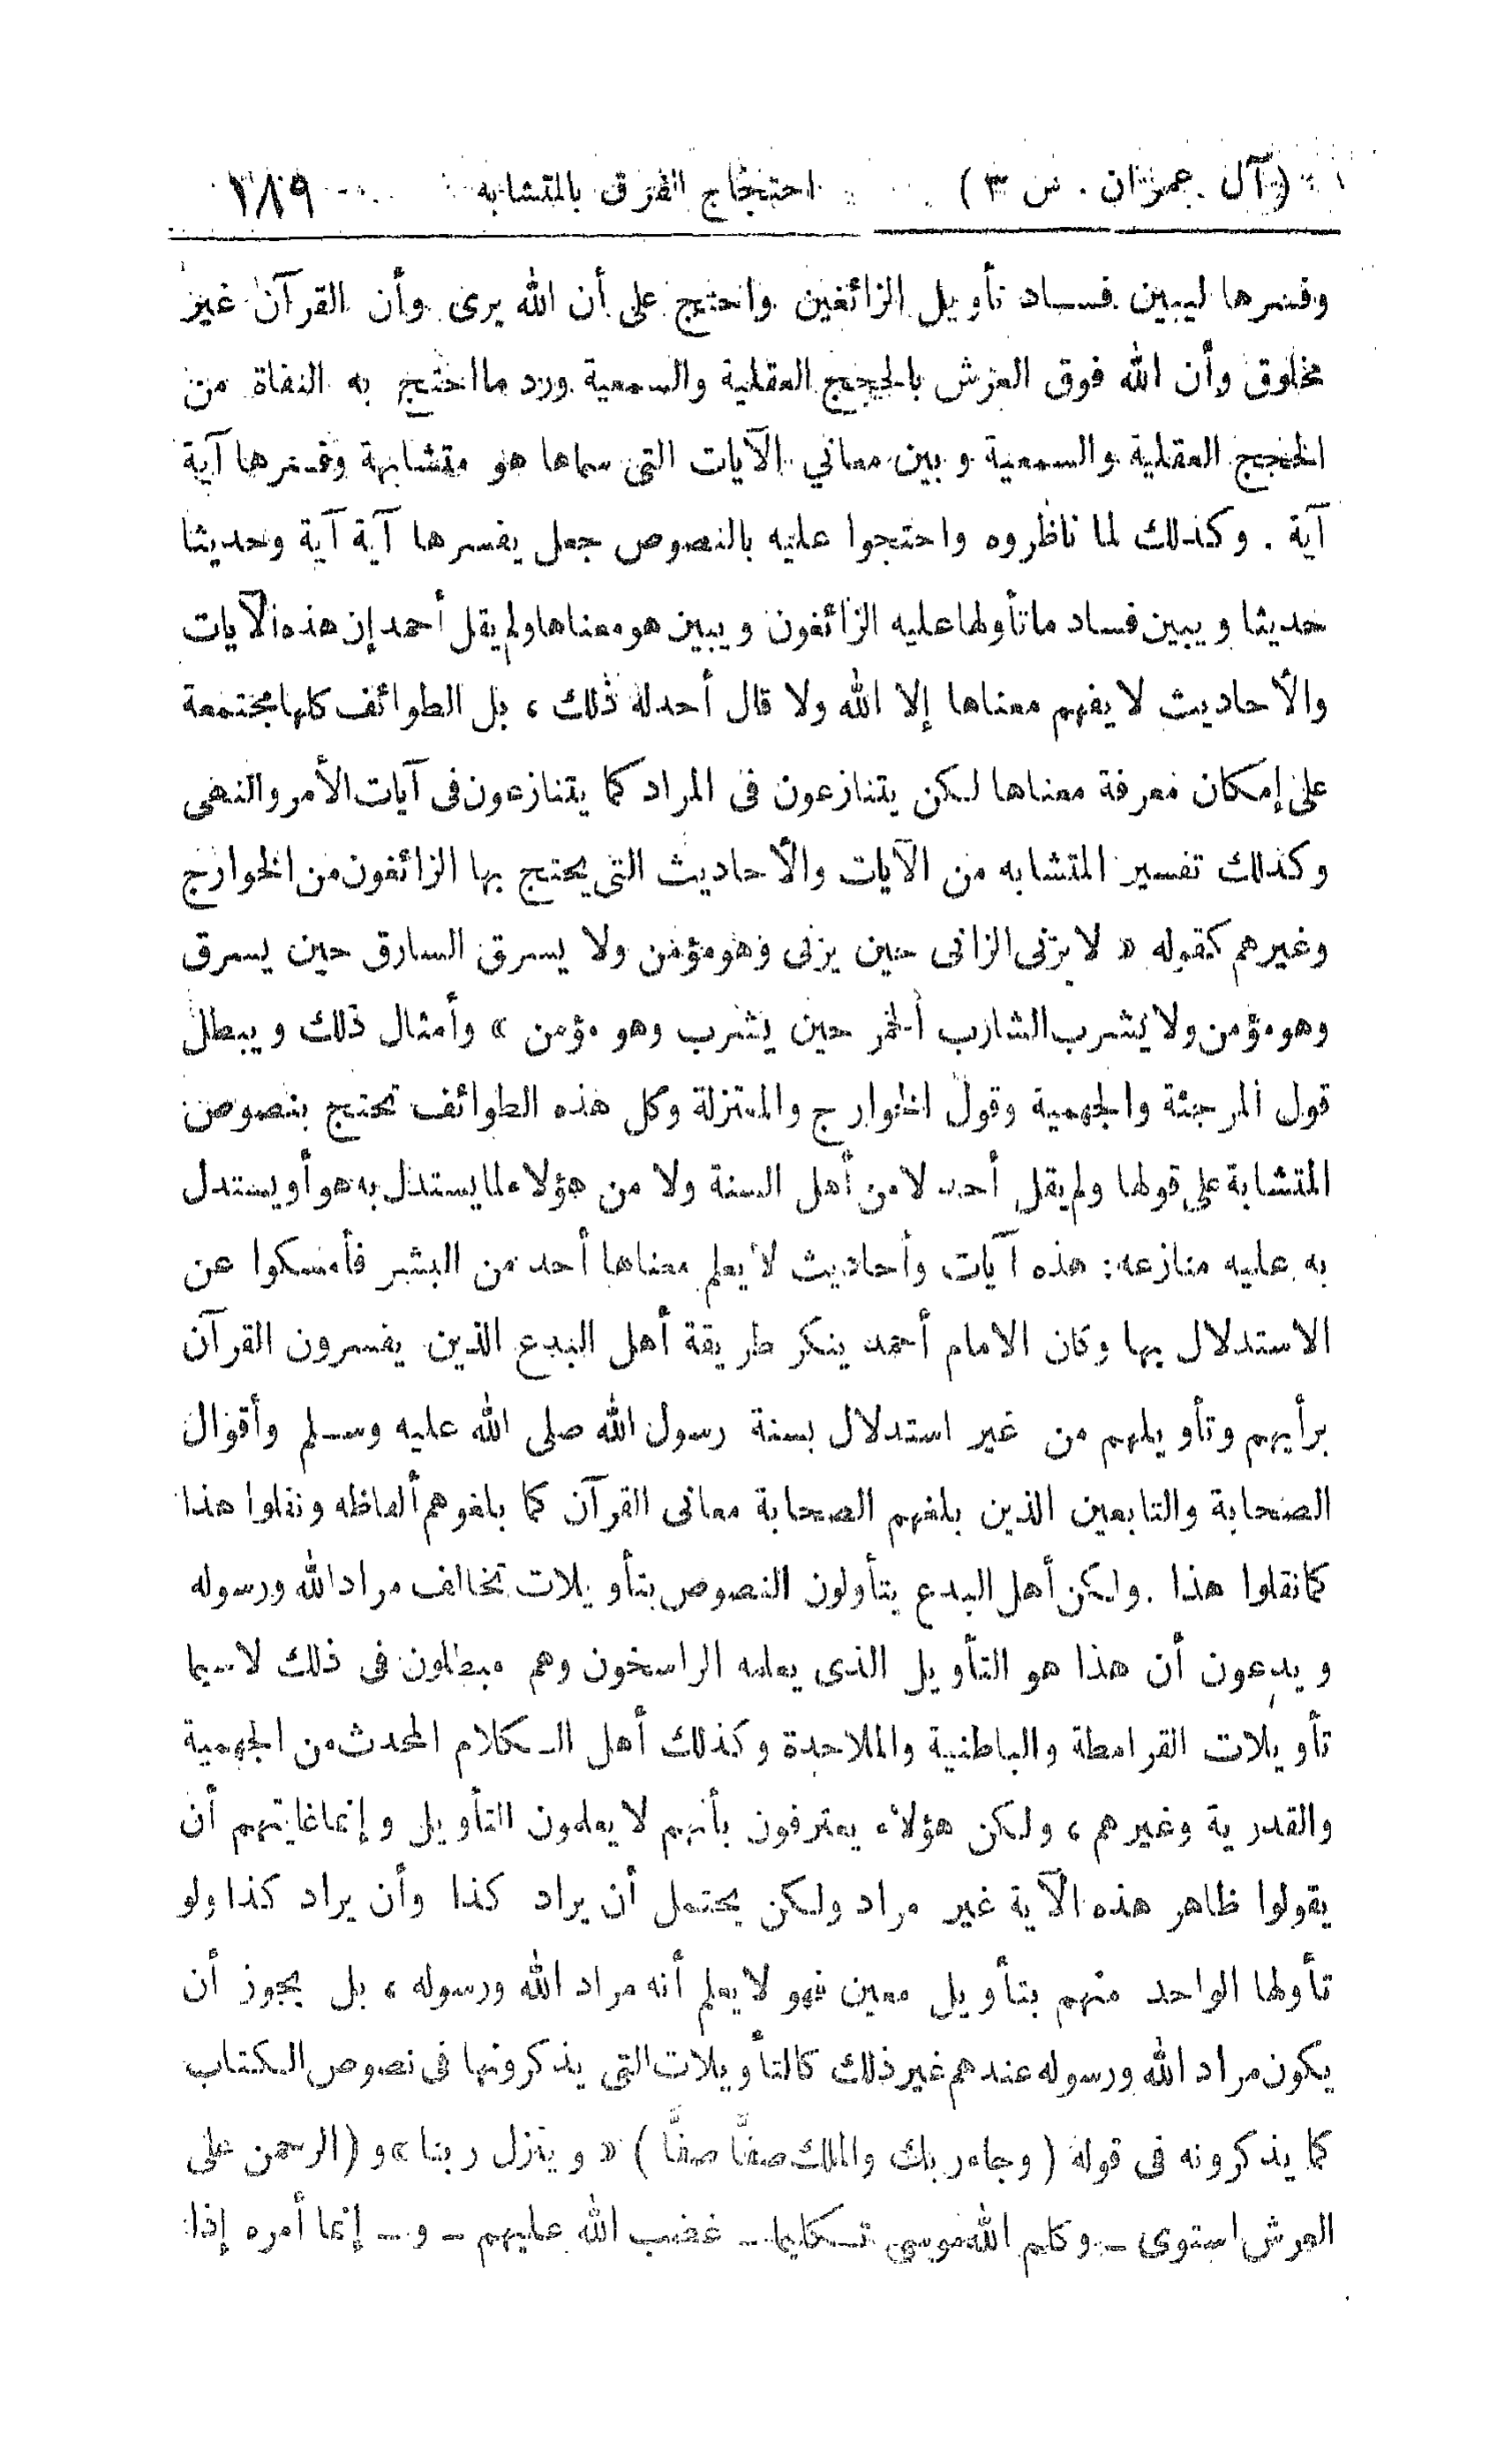 (آل عمران . س ٣) احتجاج الفرق بالمتشابه ١٨٩
وفسرها ليبين فساد تأويل الزائغين واحتج على أن الله يرى وأن القرآن غير
مخلوق وأن الله فوق العرش بالحجج العقلية والسمعية ورد ما احتج به النفاة من
الحجج العقلية والسمعية وبين معاني الآيات التى سماها هو متشابهة وفسرها آية
آية . وكذلك لما ناظروه واحتجوا عليه بالنصوص جعل يفسرها آية آية وحديثا
حديثا ويبين فساد ما تأولها عليه الزائغون ويبين هو معناها ولم يقل أحمد إن هذه الآيات
والأحاديث لا يفهم معناها إلا الله ولا قال أحد له ذلك ، بل الطوائف كلها مجتمعة
على إمكان معرفة معناها لكن يتنازعون فى المراد كما يتنازعون فى آيات الأمر والنهى
وكذلك تفسير المتشابه من الآيات والأحاديث التى يحتج بها الزائغون من الخوارج
وغيرهم كقوله « لا يزنى الزانى حين يزنى وهو مؤمن ولا يسرق السارق حين يسرق
وهو مؤمن ولا يشرب الشارب الخمر حين يشرب وهو مؤمن » وأمثال ذلك ويبطل
قول المرجئة والجهمية وقول الخوارج والمعتزلة وكل هذه الطوائف تحتج بنصوص
المتشابة على قولها ولم يقل أحد لا من أهل السنة ولا من هؤلاء لما يستدل به هو أو يستدل
به عليه منازعه: هذه آيات وأحاديث لا يعلم معناها أحد من البشر فأمسكوا عن
الاستدلال بها وكان الامام أحمد ينكر طريقة أهل البدع الذين يفسرون القرآن
برأيهم وتأويلهم من غير استدلال بسنة رسول الله صلى الله عليه وسلم وأقوال
الصحابة والتابعين الذين بلغهم الصحابة معانى القرآن كما بلغوهم ألفاظه ونقلوا هذا
كما نقلوا هذا . ولكن أهل البدع يتأولون النصوص بتأويلات تخالف مراد الله ورسوله
ويدعون أن هذا هو التأويل الذى يعلمه الراسخون وهم مبطلون فى ذلك لا سيما
تأويلات القرامطة والباطنية والملاحدة وكذلك أهل الكلام المحدث من الجهمية
والقدرية وغيرهم ، ولكن هؤلاء يعترفون بأنهم لا يعلمون التأويل وإنما غايتهم أن
يقولوا ظاهر هذه الآية غير مراد ولكن يحتمل أن يراد كذا وأن يراد كذا ولو
تأولها الواحد منهم بتأويل معين فهو لا يعلم أنه مراد الله ورسوله ، بل يجوز أن
يكون مراد الله ورسوله عندهم غير ذلك كالتأويلات التى يذكرونها فى نصوص الكتاب
كما يذكرونه فى قوله ( وجاء ربك والملك صفًّا صفًّا ) « وينزل ربنا » و (الرحمن على
العرش استوى ــ وكلم الله موسى تكليما ــ غضب الله عليهم ــ و ــ إنما أمره إذا